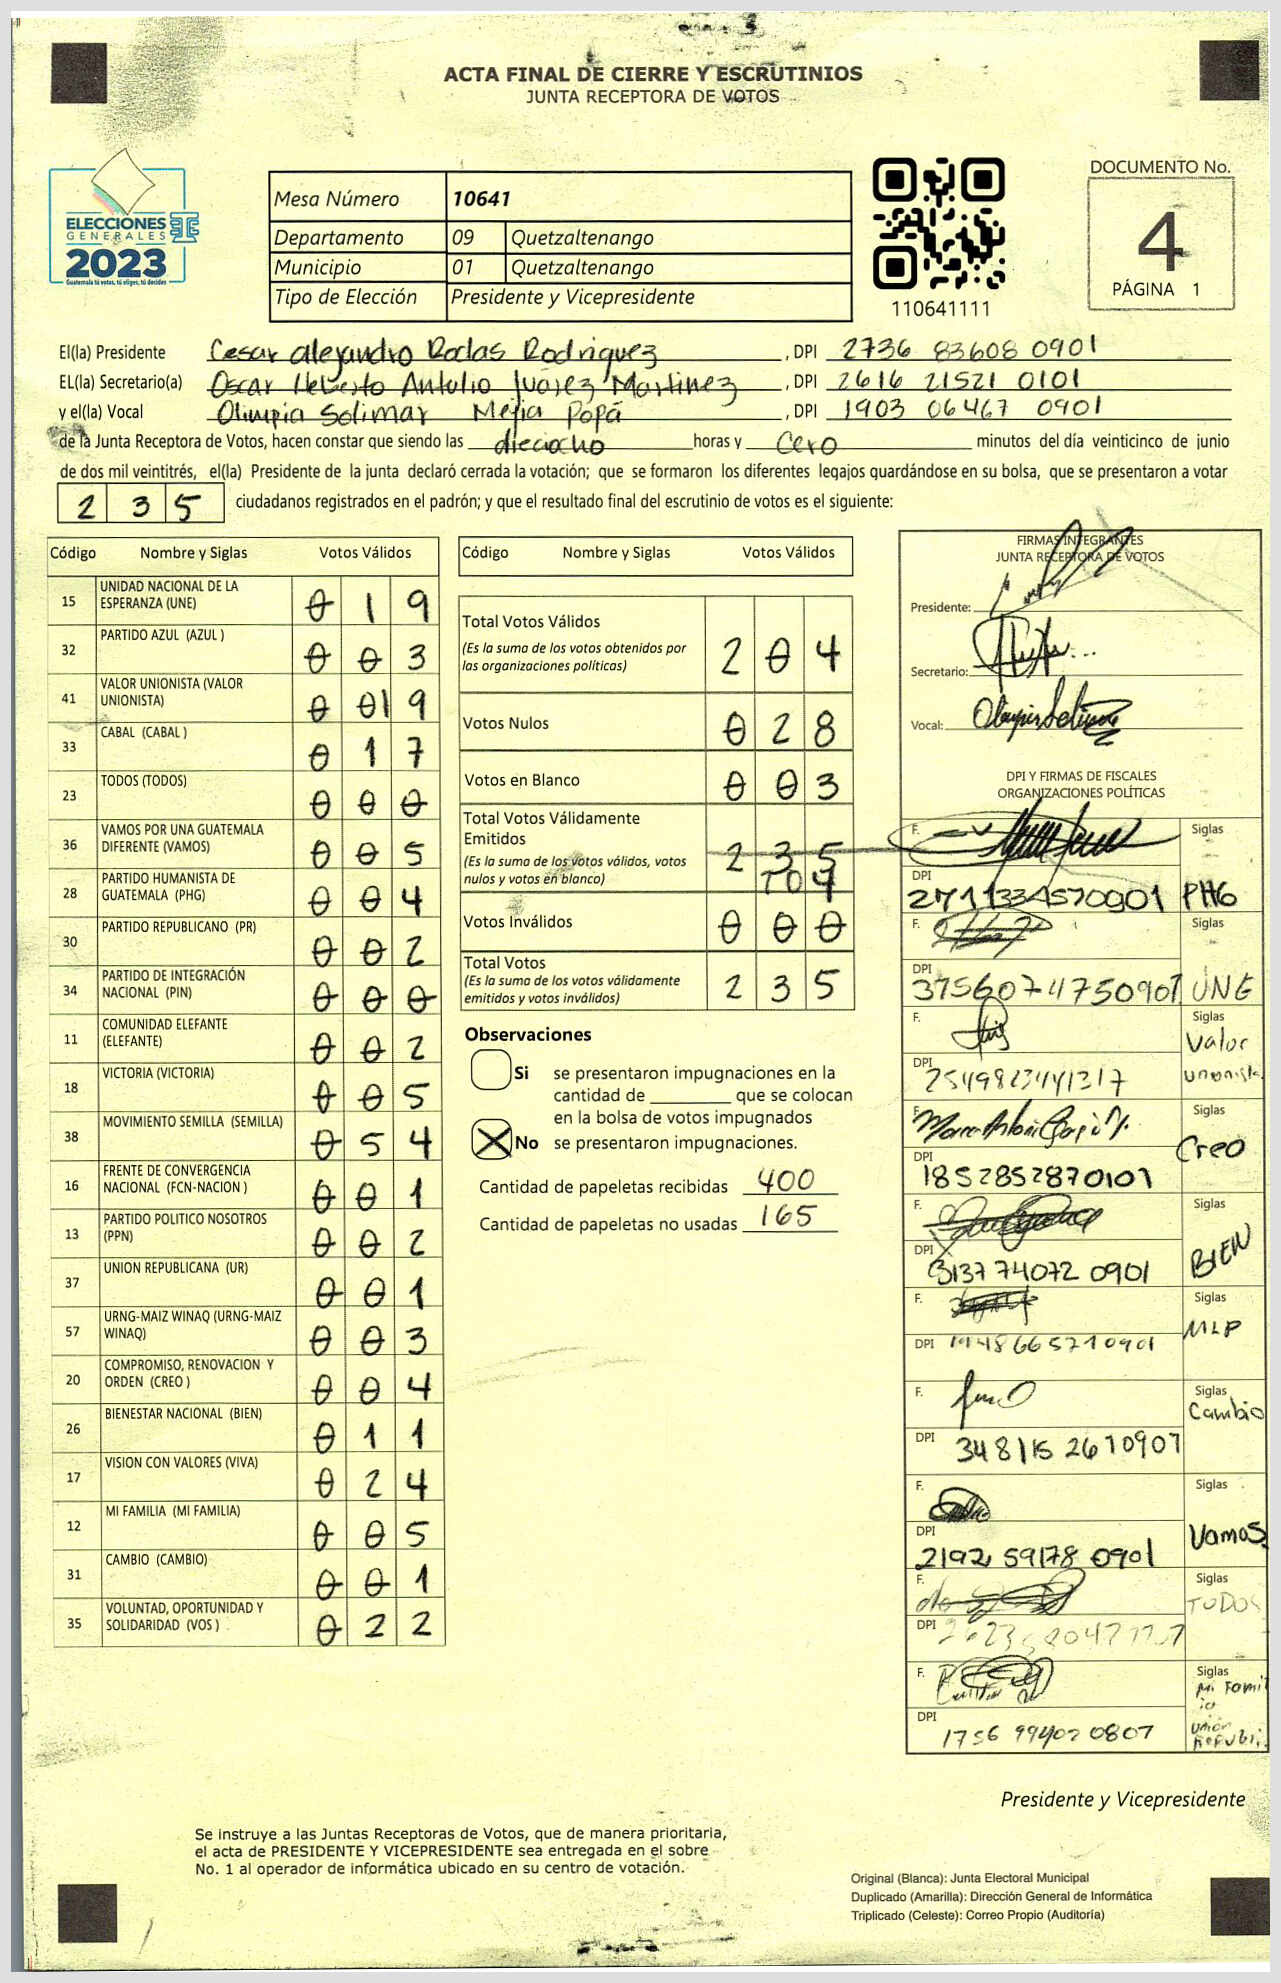 ACTA FINAL DE CIERRE Y ESCRUTINIOS
JUNTA RECEPTORA DE VOTOS
ELECCIONES
GENERALES
2023
Guatemala tú votas, tú eliges, tú decides
Mesa Número 10641
Departamento 09 Quetzaltenango
Municipio 01 Quetzaltenango
Tipo de Elección Presidente y Vicepresidente
110641111
DOCUMENTO No.
4
PÁGINA 1
El(la) Presidente Cesar alejandro Rodas Rodriguez, DPI 2736 83608 0901
EL(la) Secretario(a) Oscar Heberto Antulio Juárez Martinez, DPI 2616 21521 0101
y el(la) Vocal Olimpia Solimar Mejia Popá, DPI 1903 06467 0901
de la Junta Receptora de Votos, hacen constar que siendo las dieciocho horas y cero minutos del día veinticinco de junio
de dos mil veintitrés, el(la) Presidente de la junta declaró cerrada la votación; que se formaron los diferentes legajos guardándose en su bolsa, que se presentaron a votar
235 ciudadanos registrados en el padrón; y que el resultado final del escrutinio de votos es el siguiente:
Código Nombre y Siglas Votos Válidos
15 UNIDAD NACIONAL DE LA ESPERANZA (UNE) 0 1 9
32 PARTIDO AZUL (AZUL ) 0 0 3
41 VALOR UNIONISTA (VALOR UNIONISTA) 0 01 9
33 CABAL (CABAL ) 0 1 7
23 TODOS (TODOS) 0 0 0
36 VAMOS POR UNA GUATEMALA DIFERENTE (VAMOS) 0 0 5
28 PARTIDO HUMANISTA DE GUATEMALA (PHG) 0 0 4
30 PARTIDO REPUBLICANO (PR) 0 0 2
34 PARTIDO DE INTEGRACIÓN NACIONAL (PIN) 0 0 0
11 COMUNIDAD ELEFANTE (ELEFANTE) 0 0 2
18 VICTORIA (VICTORIA) 0 0 5
38 MOVIMIENTO SEMILLA (SEMILLA) 0 5 4
16 FRENTE DE CONVERGENCIA NACIONAL (FCN-NACION ) 0 0 1
13 PARTIDO POLITICO NOSOTROS (PPN) 0 0 2
37 UNION REPUBLICANA (UR) 0 0 1
57 URNG-MAIZ WINAQ (URNG-MAIZ WINAQ) 0 0 3
20 COMPROMISO, RENOVACION Y ORDEN (CREO ) 0 0 4
26 BIENESTAR NACIONAL (BIEN) 0 1 1
17 VISION CON VALORES (VIVA) 0 2 4
12 MI FAMILIA (MI FAMILIA) 0 0 5
31 CAMBIO (CAMBIO) 0 0 1
35 VOLUNTAD, OPORTUNIDAD Y SOLIDARIDAD (VOS ) 0 2 2
Código Nombre y Siglas Votos Válidos
Total Votos Válidos
(Es la suma de los votos obtenidos por las organizaciones políticas) 2 0 4
Votos Nulos 0 2 8
Votos en Blanco 0 0 3
Total Votos Válidamente Emitidos
(Es la suma de los votos válidos, votos nulos y votos en blanco) 2 3 5
Votos Inválidos 0 0 0
Total Votos
(Es la suma de los votos válidamente emitidos y votos inválidos) 2 3 5
Observaciones
Si se presentaron impugnaciones en la
cantidad de ________ que se colocan
en la bolsa de votos impugnados
X No se presentaron impugnaciones.
Cantidad de papeletas recibidas 400
Cantidad de papeletas no usadas 165
FIRMAS INTEGRANTES
JUNTA RECEPTORA DE VOTOS
Presidente:
Secretario:
Vocal:
DPI Y FIRMAS DE FISCALES
ORGANIZACIONES POLÍTICAS
F. Siglas
DPI 2711334570901 PHG
F. Siglas
DPI 3756074750901 UNE
F. Siglas
Valor
DPI 2549823441317 Unionista
F. Siglas
Creo
DPI 1852852870101
F. Siglas
BIEN
DPI 3137 74072 0901
F. Siglas
MLP
DPI 1948665710901
F. Siglas
Cambio
DPI 348115 2670907
F. Siglas
Vamos
DPI 2192 59178 0901
F. Siglas
TODOS
DPI
F. Siglas
Mi Famil
ia
DPI 1756 994020807
Unión
Republi.
Presidente y Vicepresidente
Se instruye a las Juntas Receptoras de Votos, que de manera prioritaria,
el acta de PRESIDENTE Y VICEPRESIDENTE sea entregada en el sobre
No. 1 al operador de informática ubicado en su centro de votación.
Original (Blanca): Junta Electoral Municipal
Duplicado (Amarilla): Dirección General de Informática
Triplicado (Celeste): Correo Propio (Auditoría)